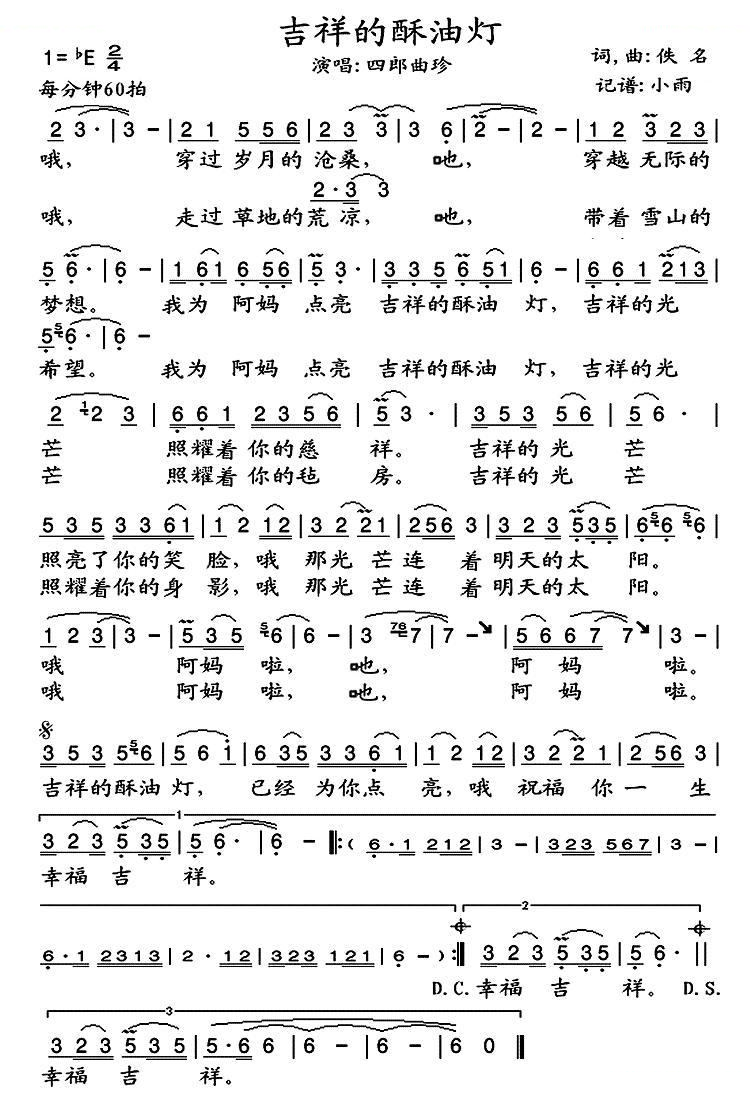 吉祥的酥油灯
1=♭E 2/4
演唱:四郎曲珍
词,曲:佚 名
每分钟60拍
记谱:小雨
2 3·|3 -|2 1 5 5 6|2 3 3|3 6|2 -|2 -|1 2 3 2 3|
哦, 穿过 岁月的 沧桑, 吔, 穿越 无际的
2·3 3
哦, 走过 草地的 荒 凉, 吔, 带着 雪山的
5 6·|6 -|1 6 1 6 5 6|5 3·|3 3 5 6 5 1|6 -|6 6 1 2 1 3|
梦想。 我为 阿妈 点亮 吉祥的酥油 灯, 吉祥的光
5 5 6·|6 -
希望。 我为 阿妈 点亮 吉祥的酥油 灯, 吉祥的光
2 1 2 3|6 6 1 2 3 5 6|5 3·|3 5 3 5 6|5 6·|
芒 照耀着 你的慈 祥。 吉祥的 光 芒
芒 照耀着 你的毡 房。 吉祥的 光 芒
5 3 5 3 3 6 1|1 2 1 2|3 2 2 1|2 5 6 3|3 2 3 5 3 5|6 5 6 5 6|
照亮了你的笑 脸,哦 那光 芒连 着 明天的太 阳。
照耀着你的身 影,哦 那光 芒连 着 明天的太 阳。
1 2 3|3 -|5 3 5 5 6|6 -|3 76 7|7 -|5 6 6 7 7|3 -|
哦 阿妈 啦, 吔, 阿 妈 啦。
哦 阿妈 啦, 吔, 阿 妈 啦。
3 5 3 5 5 6|5 6 1|6 3 5 3 3 6 1|1 2 1 2|3 2 2 1|2 5 6 3|
吉祥的酥油 灯, 已经 为你点 亮,哦 祝福 你一 生
1
3 2 3 5 3 5|5 6·|6 -‖:(6·1 2 1 2|3 -|3 2 3 5 6 7|3 -|
幸福 吉 祥。
2
6·1 2 3 1 3|2·1 2|3 2 3 1 2 1|6 -):‖3 2 3 5 3 5|5 6·‖
D.C. 幸福 吉 祥。 D.S.
3
3 2 3 5 3 5|5·6 6 6|6 -|6 -|6 0‖
幸福 吉 祥。